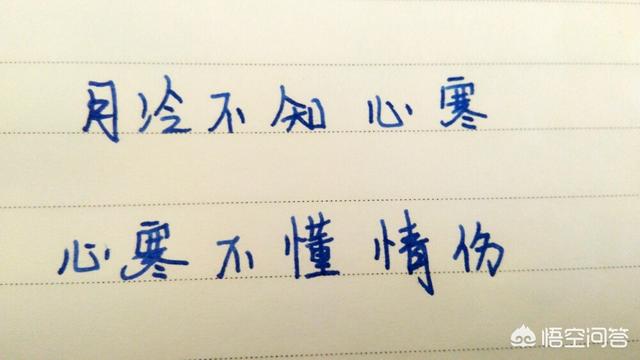 月冷不知心寒
心寒不懂情伤
悟空问答